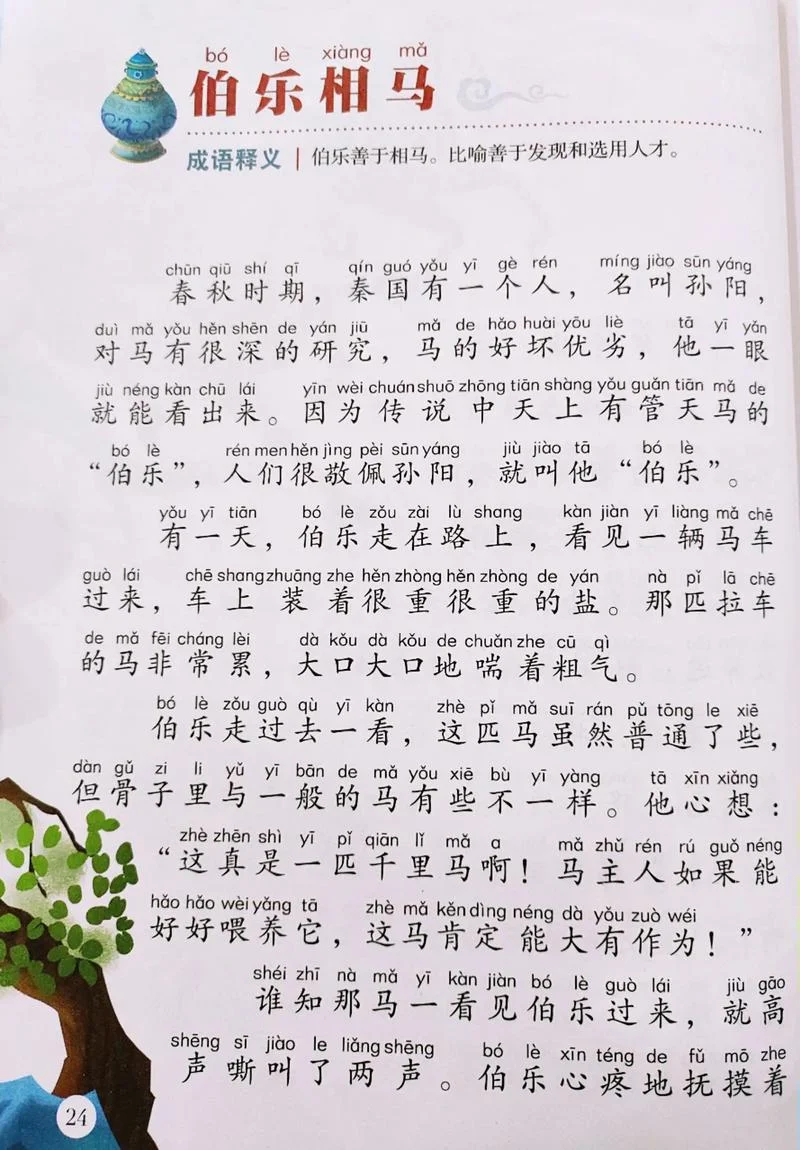 bó lè xiàng mǎ
伯乐相马
成语释义 | 伯乐善于相马。比喻善于发现和选用人才。
chūn qiū shí qī qín guó yǒu yī gè rén míng jiào sūn yáng
春秋时期，秦国有一个人，名叫孙阳，
duì mǎ yǒu hěn shēn de yán jiū mǎ de hǎo huài yōu liè tā yī yǎn
对马有很深的研究，马的好坏优劣，他一眼
jiù néng kàn chū lái yīn wèi chuán shuō zhōng tiān shàng yǒu guǎn tiān mǎ de
就能看出来。因为传说中天上有管天马的
bó lè rén men hěn jìng pèi sūn yáng jiù jiào tā bó lè
“伯乐”，人们很敬佩孙阳，就叫他“伯乐”。
yǒu yī tiān bó lè zǒu zài lù shang kàn jiàn yī liàng mǎ chē
有一天，伯乐走在路上，看见一辆马车
guò lái chē shang zhuāng zhe hěn zhòng hěn zhòng de yán nà pǐ lā chē
过来，车上装着很重很重的盐。那匹拉车
de mǎ fēi cháng lèi dà kǒu dà kǒu de chuǎn zhe cū qì
的马非常累，大口大口地喘着粗气。
bó lè zǒu guò qù yī kàn zhè pǐ mǎ suī rán pǔ tōng le xiē
伯乐走过去一看，这匹马虽然普通了些，
dàn gǔ zi li yǔ yī bān de mǎ yǒu xiē bù yī yàng tā xīn xiǎng
但骨子里与一般的马有些不一样。他心想：
zhè zhēn shì yī pǐ qiān lǐ mǎ a mǎ zhǔ rén rú guǒ néng
“这真是一匹千里马啊！马主人如果能
hǎo hǎo wèi yǎng tā zhè mǎ kěn dìng néng dà yǒu zuò wéi
好好喂养它，这马肯定能大有作为！”
shéi zhī nà mǎ yī kàn jiàn bó lè guò lái jiù gāo
谁知那马一看见伯乐过来，就高
shēng sī jiào le liǎng shēng bó lè xīn téng de fǔ mō zhe
声嘶叫了两声。伯乐心疼地抚摸着
24